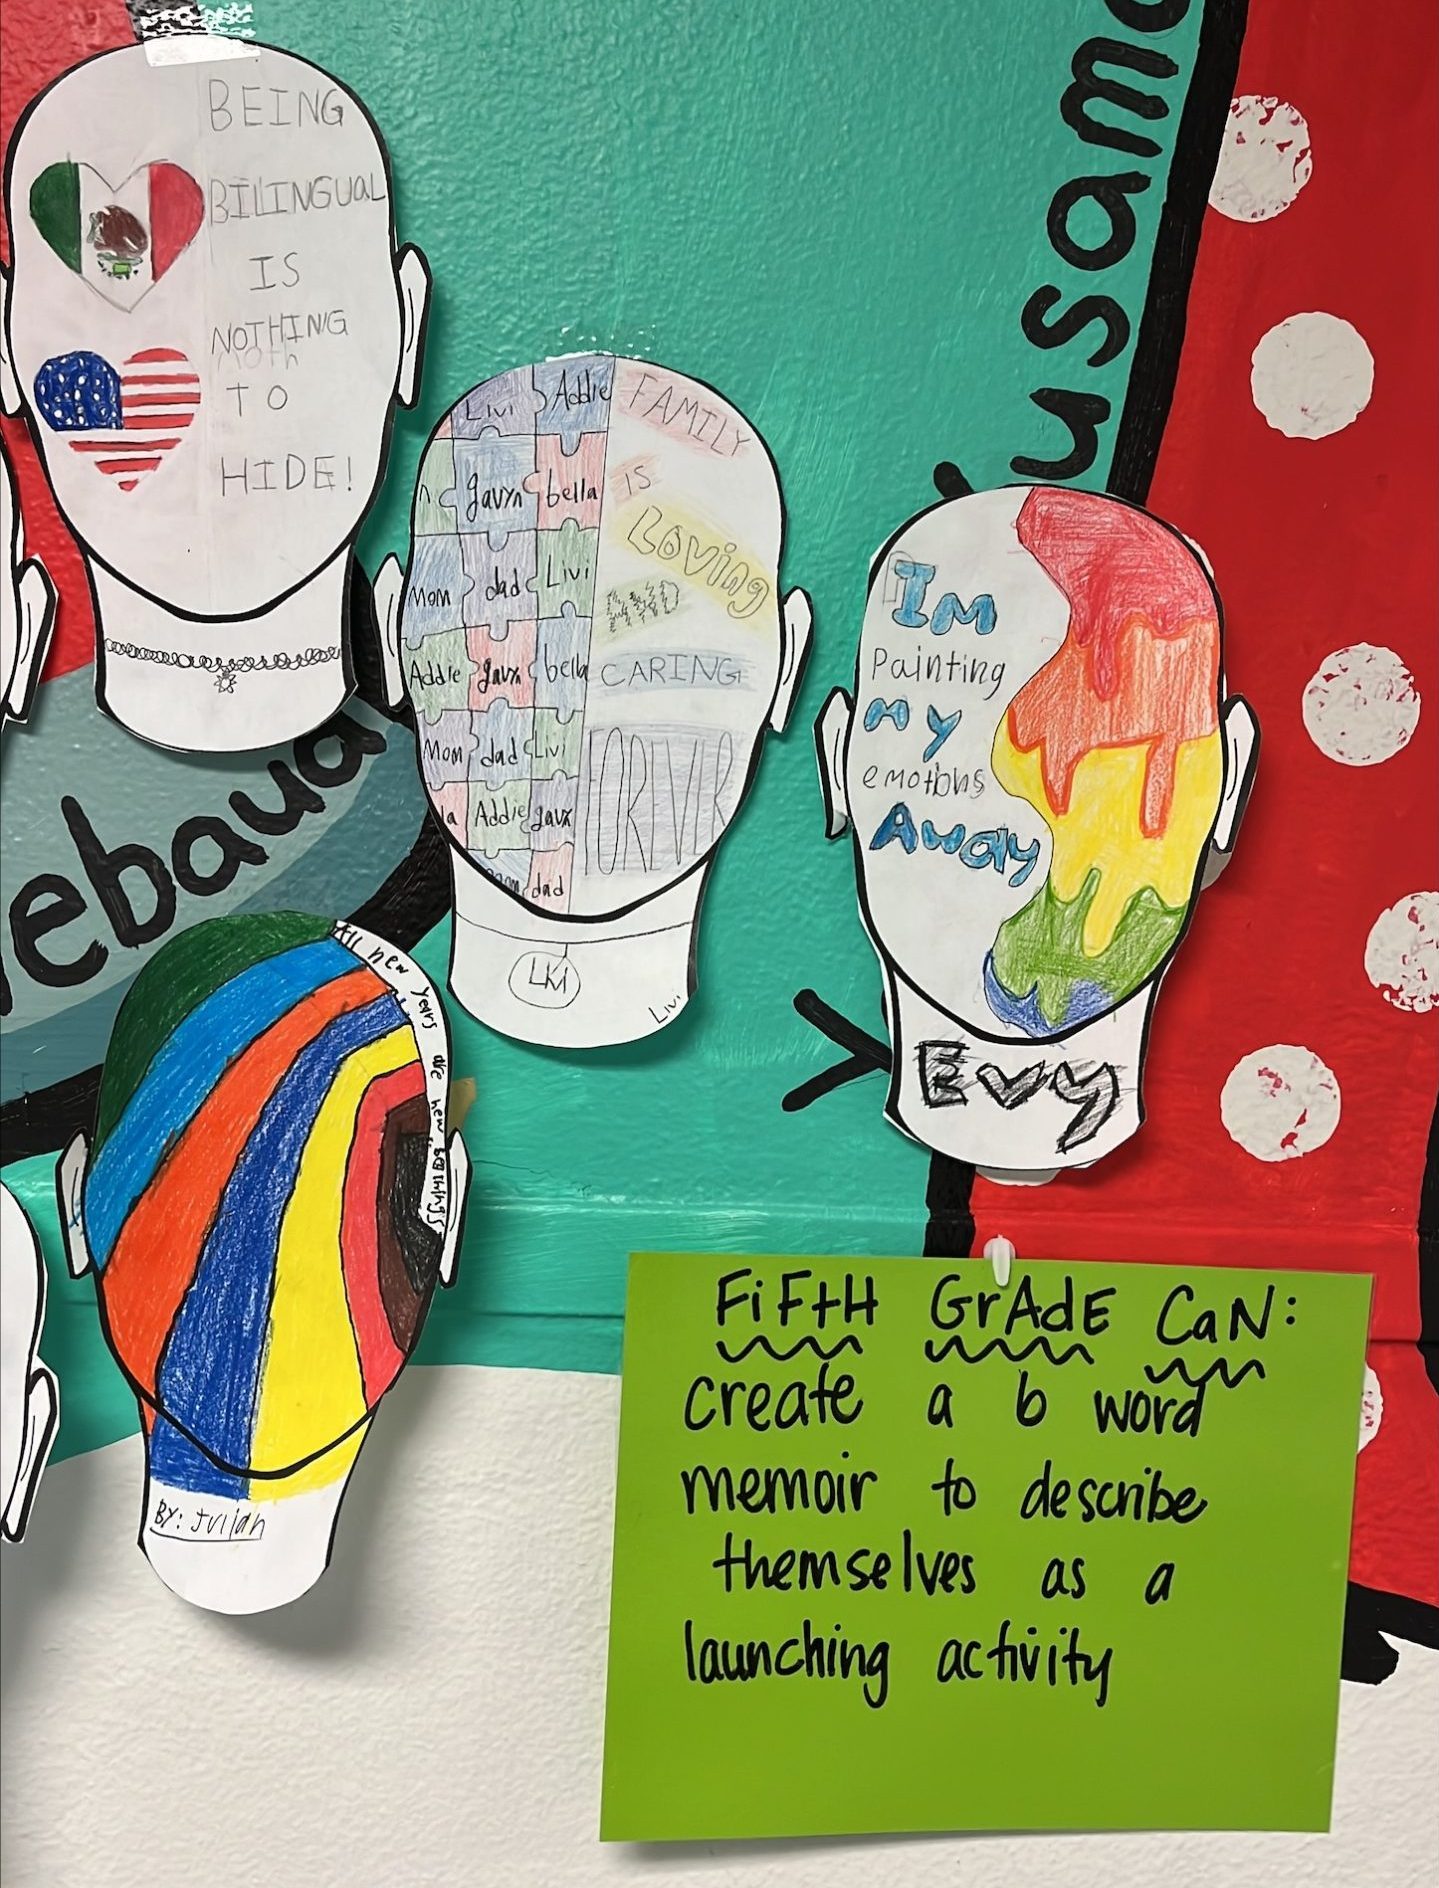 BEING
BILINGUAL
IS
NOTHING
TO
HIDE!
Livi Addie
gavyn bella
Mom dad Livi
Addie gavyn bella
Mom dad Livi
Addie gavyn
dad
FAMILY
IS
Loving
AND
CARING
FOREVER
LM
Livi
IM
Painting
My
emotions
Away
Evy
All new years are new beginings
BY: Julian
usama
ebaua
FiFtH GrAdE CaN:
create a 6 word
memoir to describe
themselves as a
launching activity